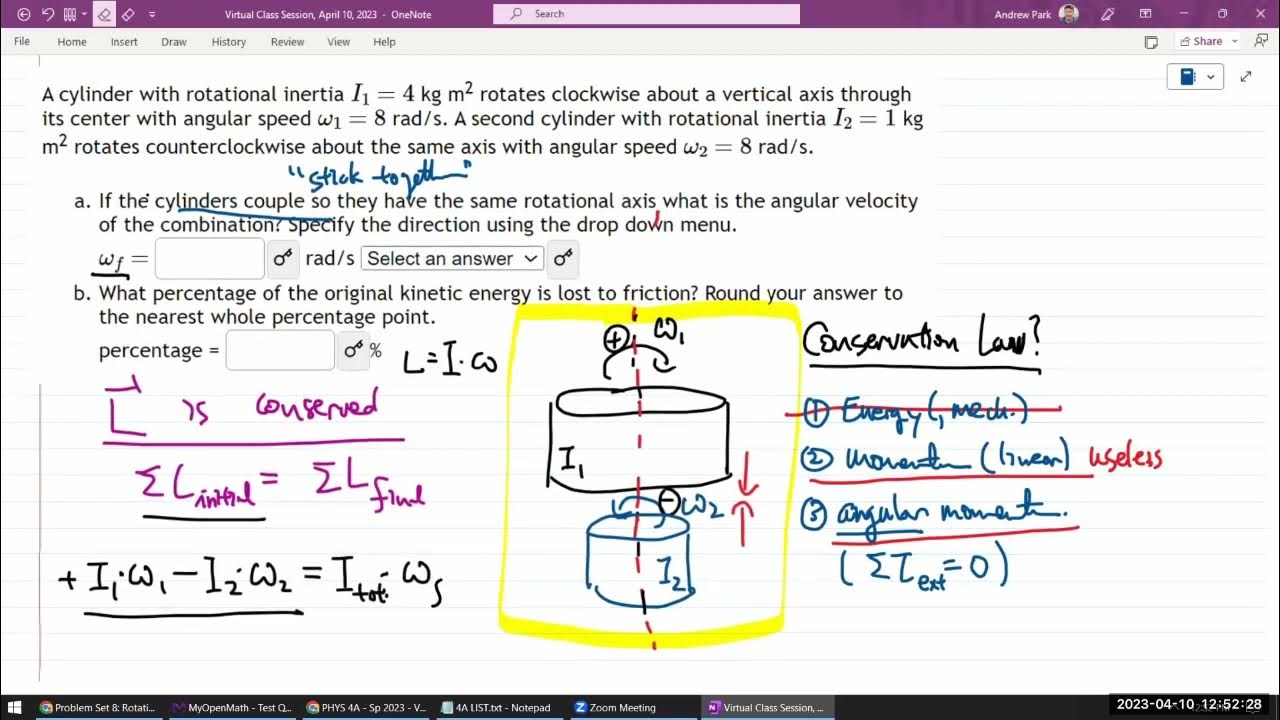 Virtual Class Session, April 10, 2023 - OneNote
Search
Andrew Park
File Home Insert Draw History Review View Help
Share
A cylinder with rotational inertia I₁ = 4 kg m² rotates clockwise about a vertical axis through
its center with angular speed ω₁ = 8 rad/s. A second cylinder with rotational inertia I₂ = 1 kg
m² rotates counterclockwise about the same axis with angular speed ω₂ = 8 rad/s.
"stick together"
a. If the cylinders couple so they have the same rotational axis what is the angular velocity
of the combination? Specify the direction using the drop down menu.
ω_f = rad/s Select an answer
b. What percentage of the original kinetic energy is lost to friction? Round your answer to
the nearest whole percentage point.
percentage = %
L = I · ω
L is conserved
ΣL initial = ΣL final
+ I₁·ω₁ − I₂·ω₂ = I tot · ω_f
+ ω₁
I₁
− ω₂
I₂
Conservation Law?
① Energy (, mech.)
② momentum (linear) useless
③ angular momentum.
(Στ ext = 0)
Problem Set 8: Rotati...
MyOpenMath - Test Q...
PHYS 4A - Sp 2023 - V...
4A LIST.txt - Notepad
Zoom Meeting
Virtual Class Session, ...
2023-04-10 12:52:28